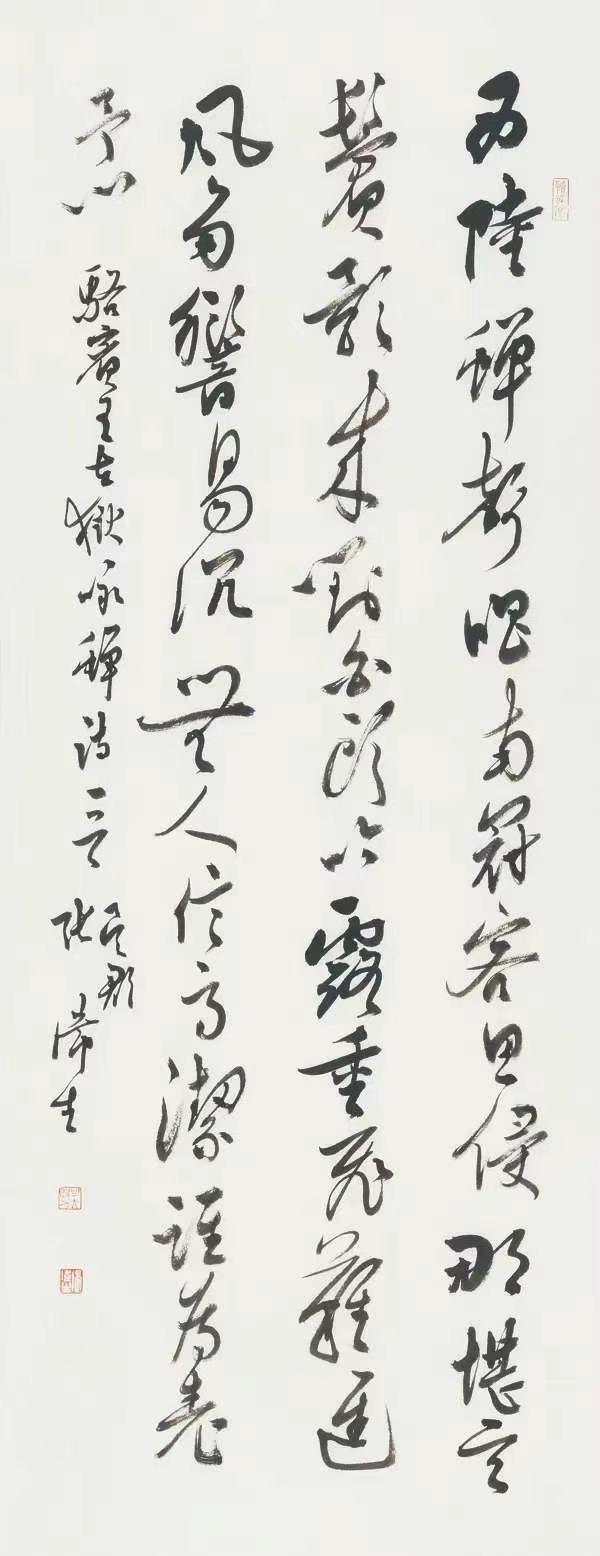 西陸蟬聲唱南冠客思侵那堪玄
鬢影来對白頭吟露重飛難進
風多響易沉無人信高潔誰為表
予心 駱賓王在獄咏蟬詩一首 吳郡 張生